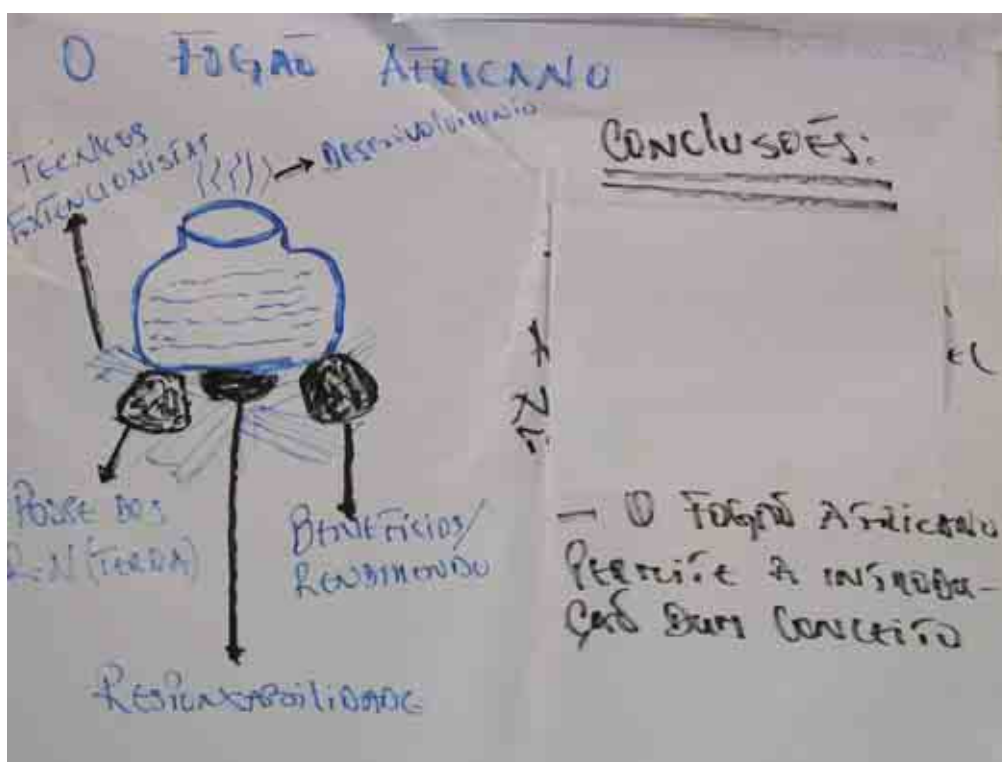 O FOGÃO AFRICANO
TECNICOS
EXTENCIONISTAS
DESENVOLVIMENTO
POSSE DOS
R.N (TERRA)
BENEFICIOS/
RENDIMENDO
RESPONSABILIDADE
CONCLUSÕES:
— O FOGÃO AFRICANO
PERMITE A INTRODU-
ÇÃO DUM CONCEITO